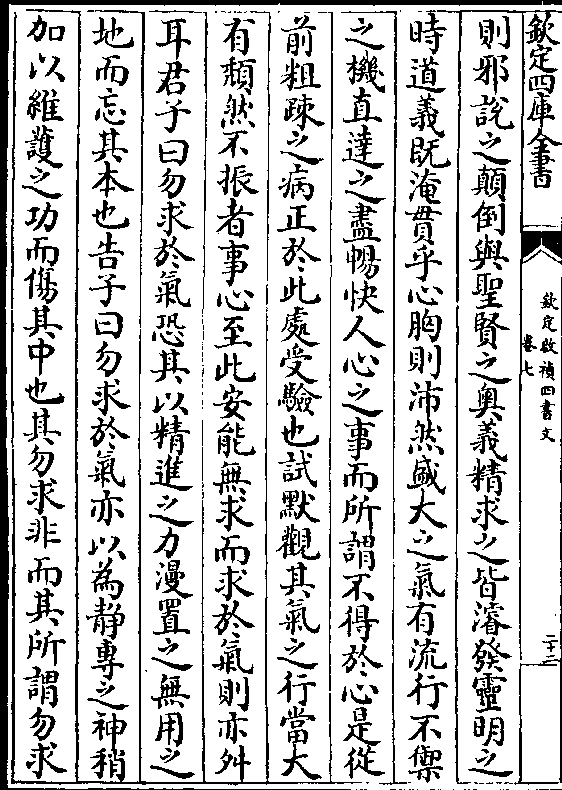 欽定四庫全書
欽定啟禎四書文
卷七
二十三
則邪說之顛倒與聖賢之奧義精求之皆濬發靈明之
時道義既淹貫乎心胸則沛然盛大之氣有流行不禦
之機直達之盡暢快人心之事而所謂不得於心是從
前粗疎之病正於此處受驗也試默觀其氣之行當大
有頽然不振者事心至此安能無求而求於氣則亦舛
耳君子曰勿求於氣恐其以精進之力漫置之無用之
地而忘其本也告子曰勿求於氣亦以為静專之神稍
加以維護之功而傷其中也其勿求非而其所謂勿求